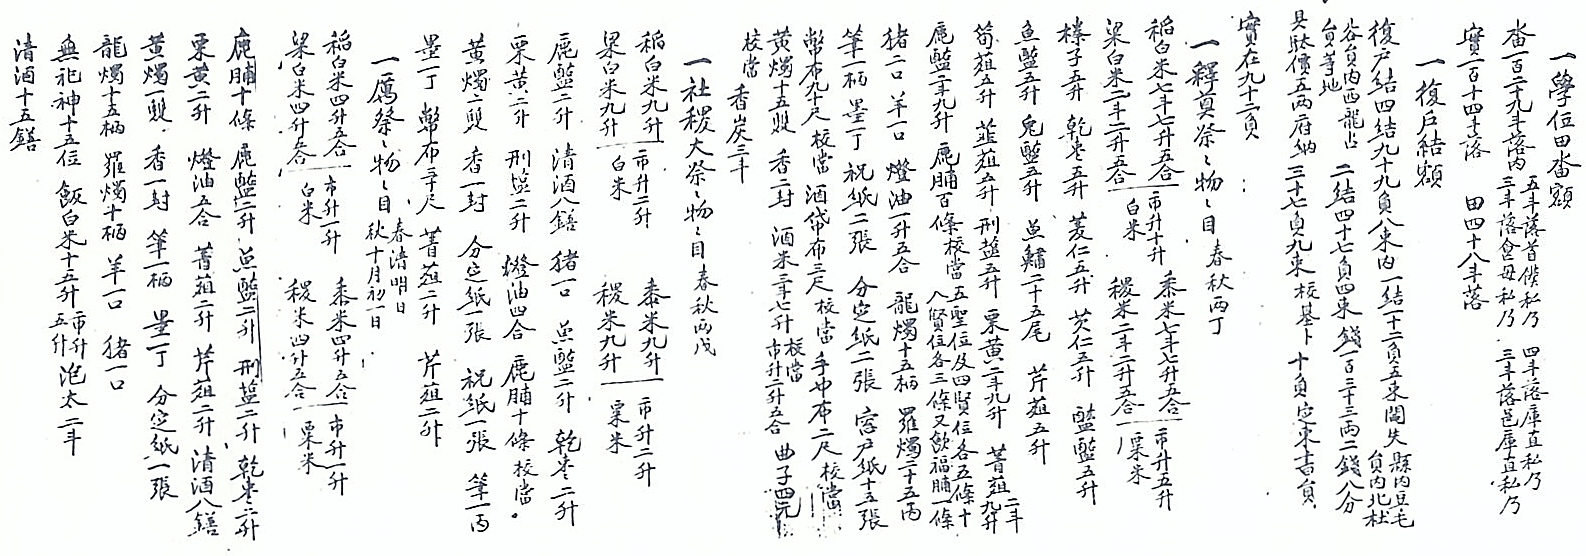 一學位田畓額
畓一百二十九斗落內 五斗落首僕私乃 四斗落庫直私乃
三斗落會母私乃 三斗落邑庫直私乃
實一百十四斗落 田四十八斗落
一復戶結額
復戶結四結九十九負八束內 一結十二負五束閪失 縣內豆毛
各員內西龍山 二結四十七負四束 錢一百三十三兩二錢八分 員內北杜
員等地
具䭾價五兩府納 三十七負九束 校基卜 十負 定束書員
實在九十二負
一釋奠祭ㄑ物ㄑ目 春秋兩丁
稻白米七斗七升五合 市升十升 白米 黍米七斗七升五合 市升五升 粟米
粱白米二斗二升五合 稷米二斗二升五合
榛子五升 乾棗五升 菱仁五升 芡仁五升 醓醢五升
魚醢五升 兎醢五升 魚鱐二十五尾 芹菹五升
筍菹五升 韮菹五升 刑塩五升 栗黃二斗九升 菁菹二斗九升
鹿醢二斗九升 鹿脯百條 校當 五聖位及四賢位各五條十
八賢位各三條又飮福脯一條
猪二口 羊一口 燈油一升五合 龍燭十五柄 羅燭二十五丙
筆一柄 墨一丁 祝紙二張 分定紙二張 窓戶紙十五張
幣布九十尺 校當 酒帒布三尺 校當 手巾布二尺 校當
黃燭十五雙 香二封 酒米三斗七升 校當 市升二升五合 曲子四元
校當 香炭三斗
一社稷大祭ㄑ物ㄑ目 春秋兩戊
稻白米九升 市升二升 白米 黍米九升 市升二升 粟米
粱白米九升 稷米九升
鹿醢二升 清酒八鐥 猪一口 魚醢二升 乾棗二升
栗黃二升 刑塩二升 燈油四合 鹿脯十條 校當
黃燭二雙 香一封 分定紙一張 祝紙一張 筆一丙
墨一丁 幣布三十尺 菁菹二升 芹菹二升
一厲祭ㄑ物ㄑ目 春淸明日 秋十月初一日
稻白米四升五合 市升一升 白米 黍米四升五合 市升一升 粟米
粱白米四升五合 稷米四升五合
鹿脯十條 鹿醢二升 魚醢二升 刑塩二升 乾棗二升
栗黃二升 燈油五合 菁菹二升 芹菹二升 清酒八鐥
黃燭一雙 香一封 筆一柄 墨一丁 分定紙一張
龍燭十五柄 羅燭十柄 羊一口 猪一口
無祀神十五位 飯白米十五升 市升五升 泡太二斗
清酒十五鐥